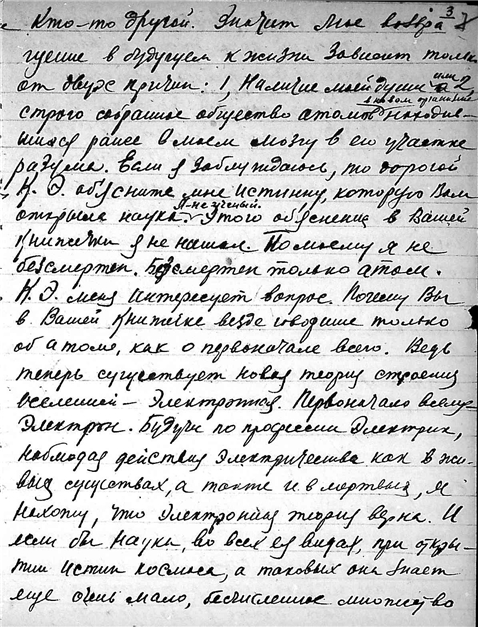 Кто-то другой. Значит мое возвра-
3
щение в будущем к жизни зависит только
от двух причин: 1, Наличие моей души или 2,
в новом организме
строго собранное общество атомов находив-
шихся ранее в моем мозгу в его участке
разума. Если я заблуждаюсь, то дорогой
К. Э. объясните мне истинну, которую Вам
я-не ученый.
открыла наука. Этого объяснения в Вашей
книжечки я не нашел. По моему я не
безсмертен. Безсмертен только атом.
К. Э. меня интересует вопрос. Почему Вы
в Вашей книжечке везде говорите только
об атоме, как о первоначале всего. Ведь
теперь существует новая теория строения
вселенной – электронная. Первоначало всему –
электрон. Будучи по профессии Электрик,
наблюдая действия электричества как в жи-
вых существах, а также и в мертвых, я
нахожу, что электронная теория верна. И
если бы наука, во всех ея видах, при откры-
тии истин космоса, а таковых она знает
еще очень мало, бесчисленное множество